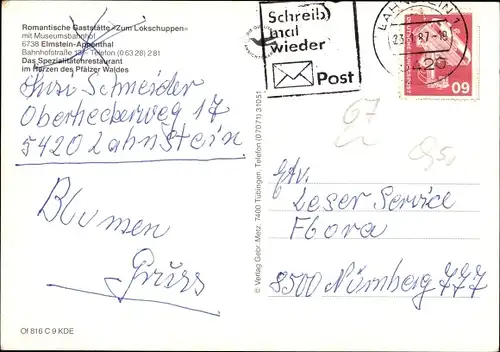 Romantische Gaststätte »Zum Lokschuppen«
mit Museumsbahnhof
6738 Elmstein-Appenthal
Bahnhofstraße Telefon (0 63 28) 2 81
Das Spezialitätenrestaurant
im Herzen des Pfälzer Waldes
Schneider
Oberheckerweg 17
5420 Lahnstein
Blumen
Gruss
Of 816 C 9 KDE
© Verlag Gebr. Metz, 7400 Tübingen, Telefon (07071) 31051
Schreib
mal
wieder
Post
LAHNSTEIN 1
23. 87-18
5420
DEUTSCHE BUNDESPOST
60
67
95,
Leser Service
Flora
8500 Nürnberg 777